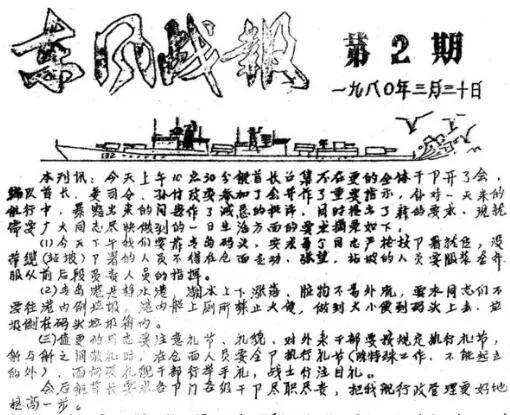 东风战报
第2期
一九八〇年三月三十日
本刊讯:今天上午10点30分舰首长召集不在更的全体干卩开了会,
编队首长、姜司令、孙付政委参加了会并作了重要指示,针对一天来的
航行中,暴露出来的问题作了诚恳的批评,同时提出了新的要求,现就
需要广大同志尽快做到的一日生活方面的要求摘录如下。
(1)今天下午我们要靠青岛码头,要求每个同志严格按卩署就位,没
带缆(站坡)卩署的人员不得在仓面走动、张望,站坡的人员要服装整齐
服从前后段负责人员的指挥。
(2)青岛港是静水港,潮水上下涨落,脏物不易外流,要求同志们不
要往港内倒垃圾,港内船上厕所禁止大便,做到大小便到码头上去,垃
圾倒在码头垃圾箱内。
(三)值更的同志要注意礼节、礼貌,对外来干部要按规定执行礼节,
舰与舰之间敬礼时,在仓面人员要全卩执行礼节(除特殊工作,不能起立
的外),面向受礼舰干部行举手礼,战士行注目礼。
会后舰首长要求各卩门各级干卩尽职尽责,把我舰行政管理更好地
提高一步。